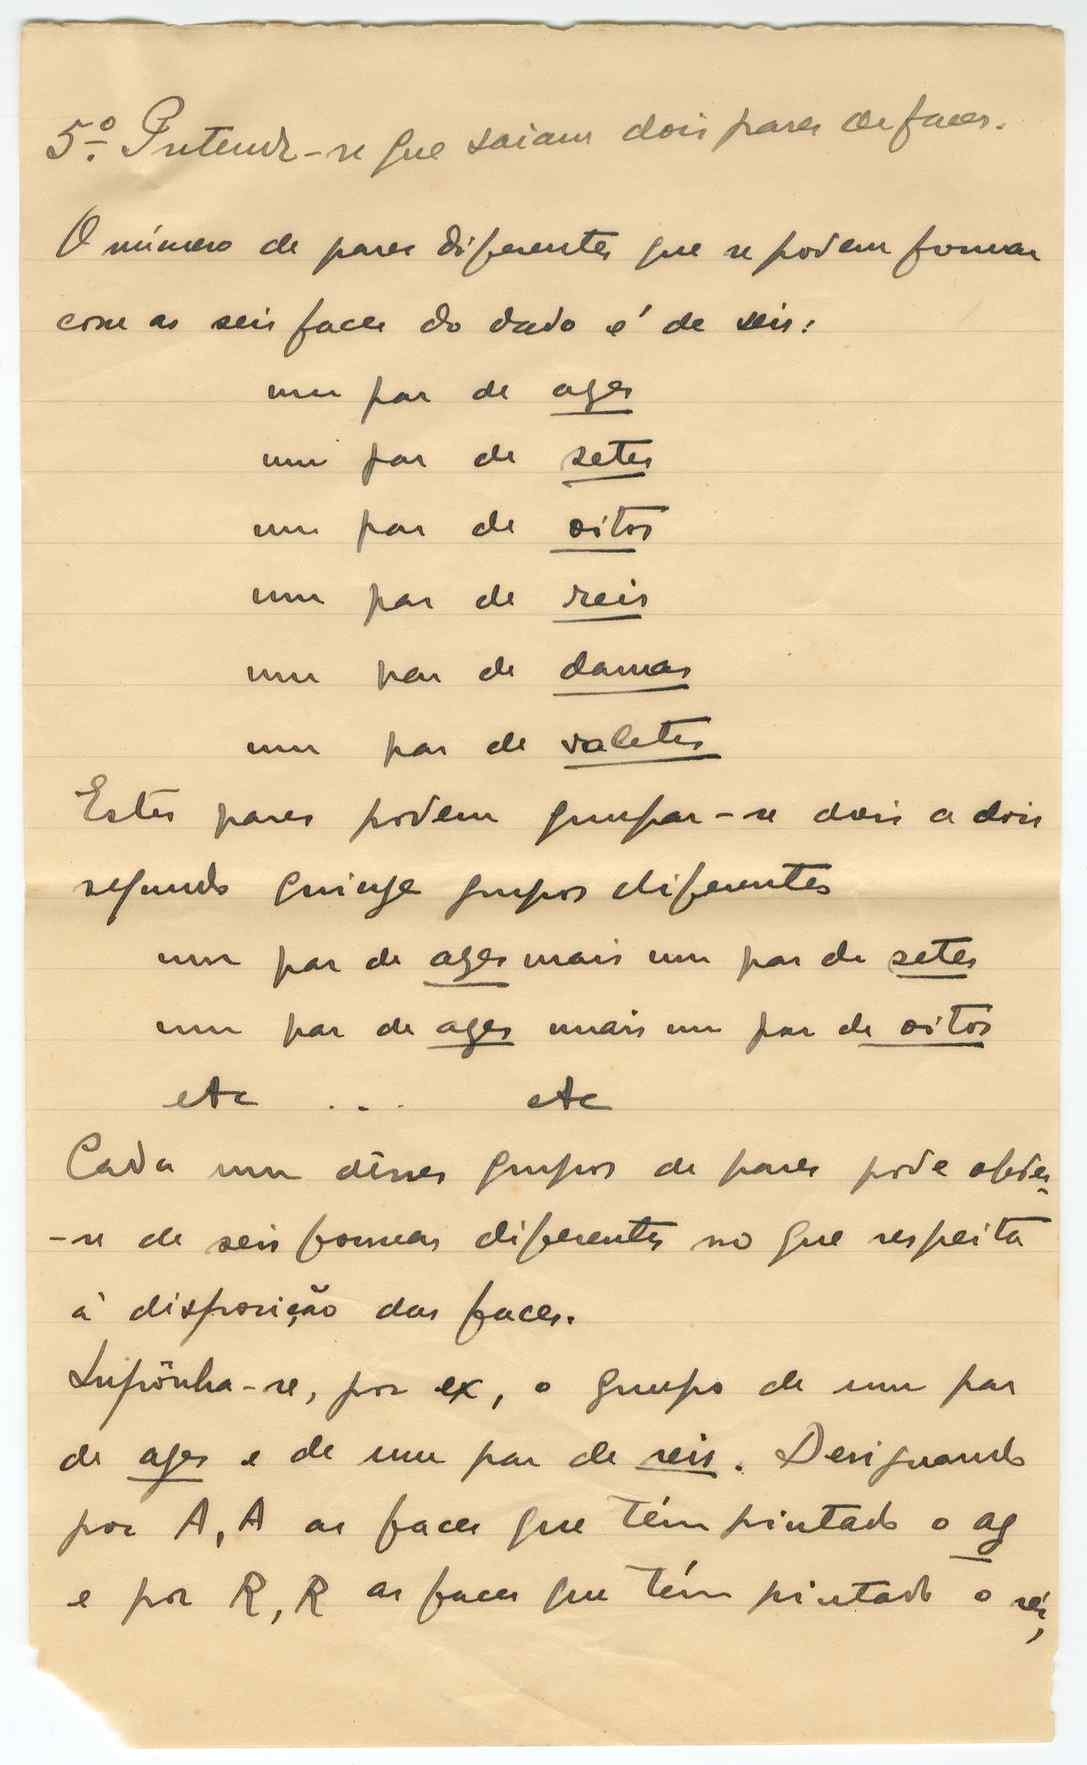 5.º Pretende-se que saiam dois pares de faces.
O número de pares diferentes que se podem formar
com as seis faces do dado é de seis:
um par de azes
um par de setes
um par de oitos
um par de reis
um par de damas
um par de valetes
Estes pares podem grupar-se dois a dois
segundo quinze grupos diferentes
um par de azes mais um par de setes
um par de azes mais um par de oitos
etc ... etc
Cada um dêsses grupos de pares pode obter-
-se de seis formas diferentes no que respeita
à disposição das faces.
Supônha-se, por ex, o grupo de um par
de azes e de um par de reis. Designando
por A, A as faces que têm pintado o az
e por R, R as faces que têm pintado o rei,